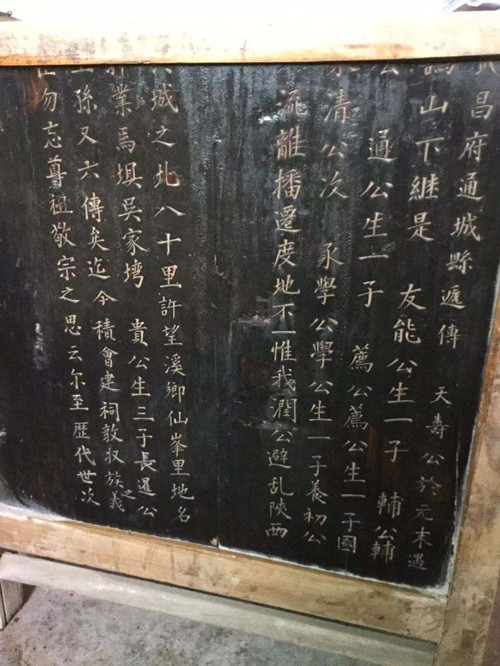 昌府通城縣遞傳 天壽公於元末遇
山下継是 友能公生一子 輔公輔
通公生一子 薦公薦公生一子國
清公次 承學公學公生一子養初公
流離播遷度地不一惟我潤公避乱陝西
城之北八十里許望溪鄉仙峯里地名
業馬塤吳家塆 貴公生三子長遇公
孫又六傳矣迄今積會建祠敦収族之義
勿忘尊祖敬宗之思云尔至歷代世次